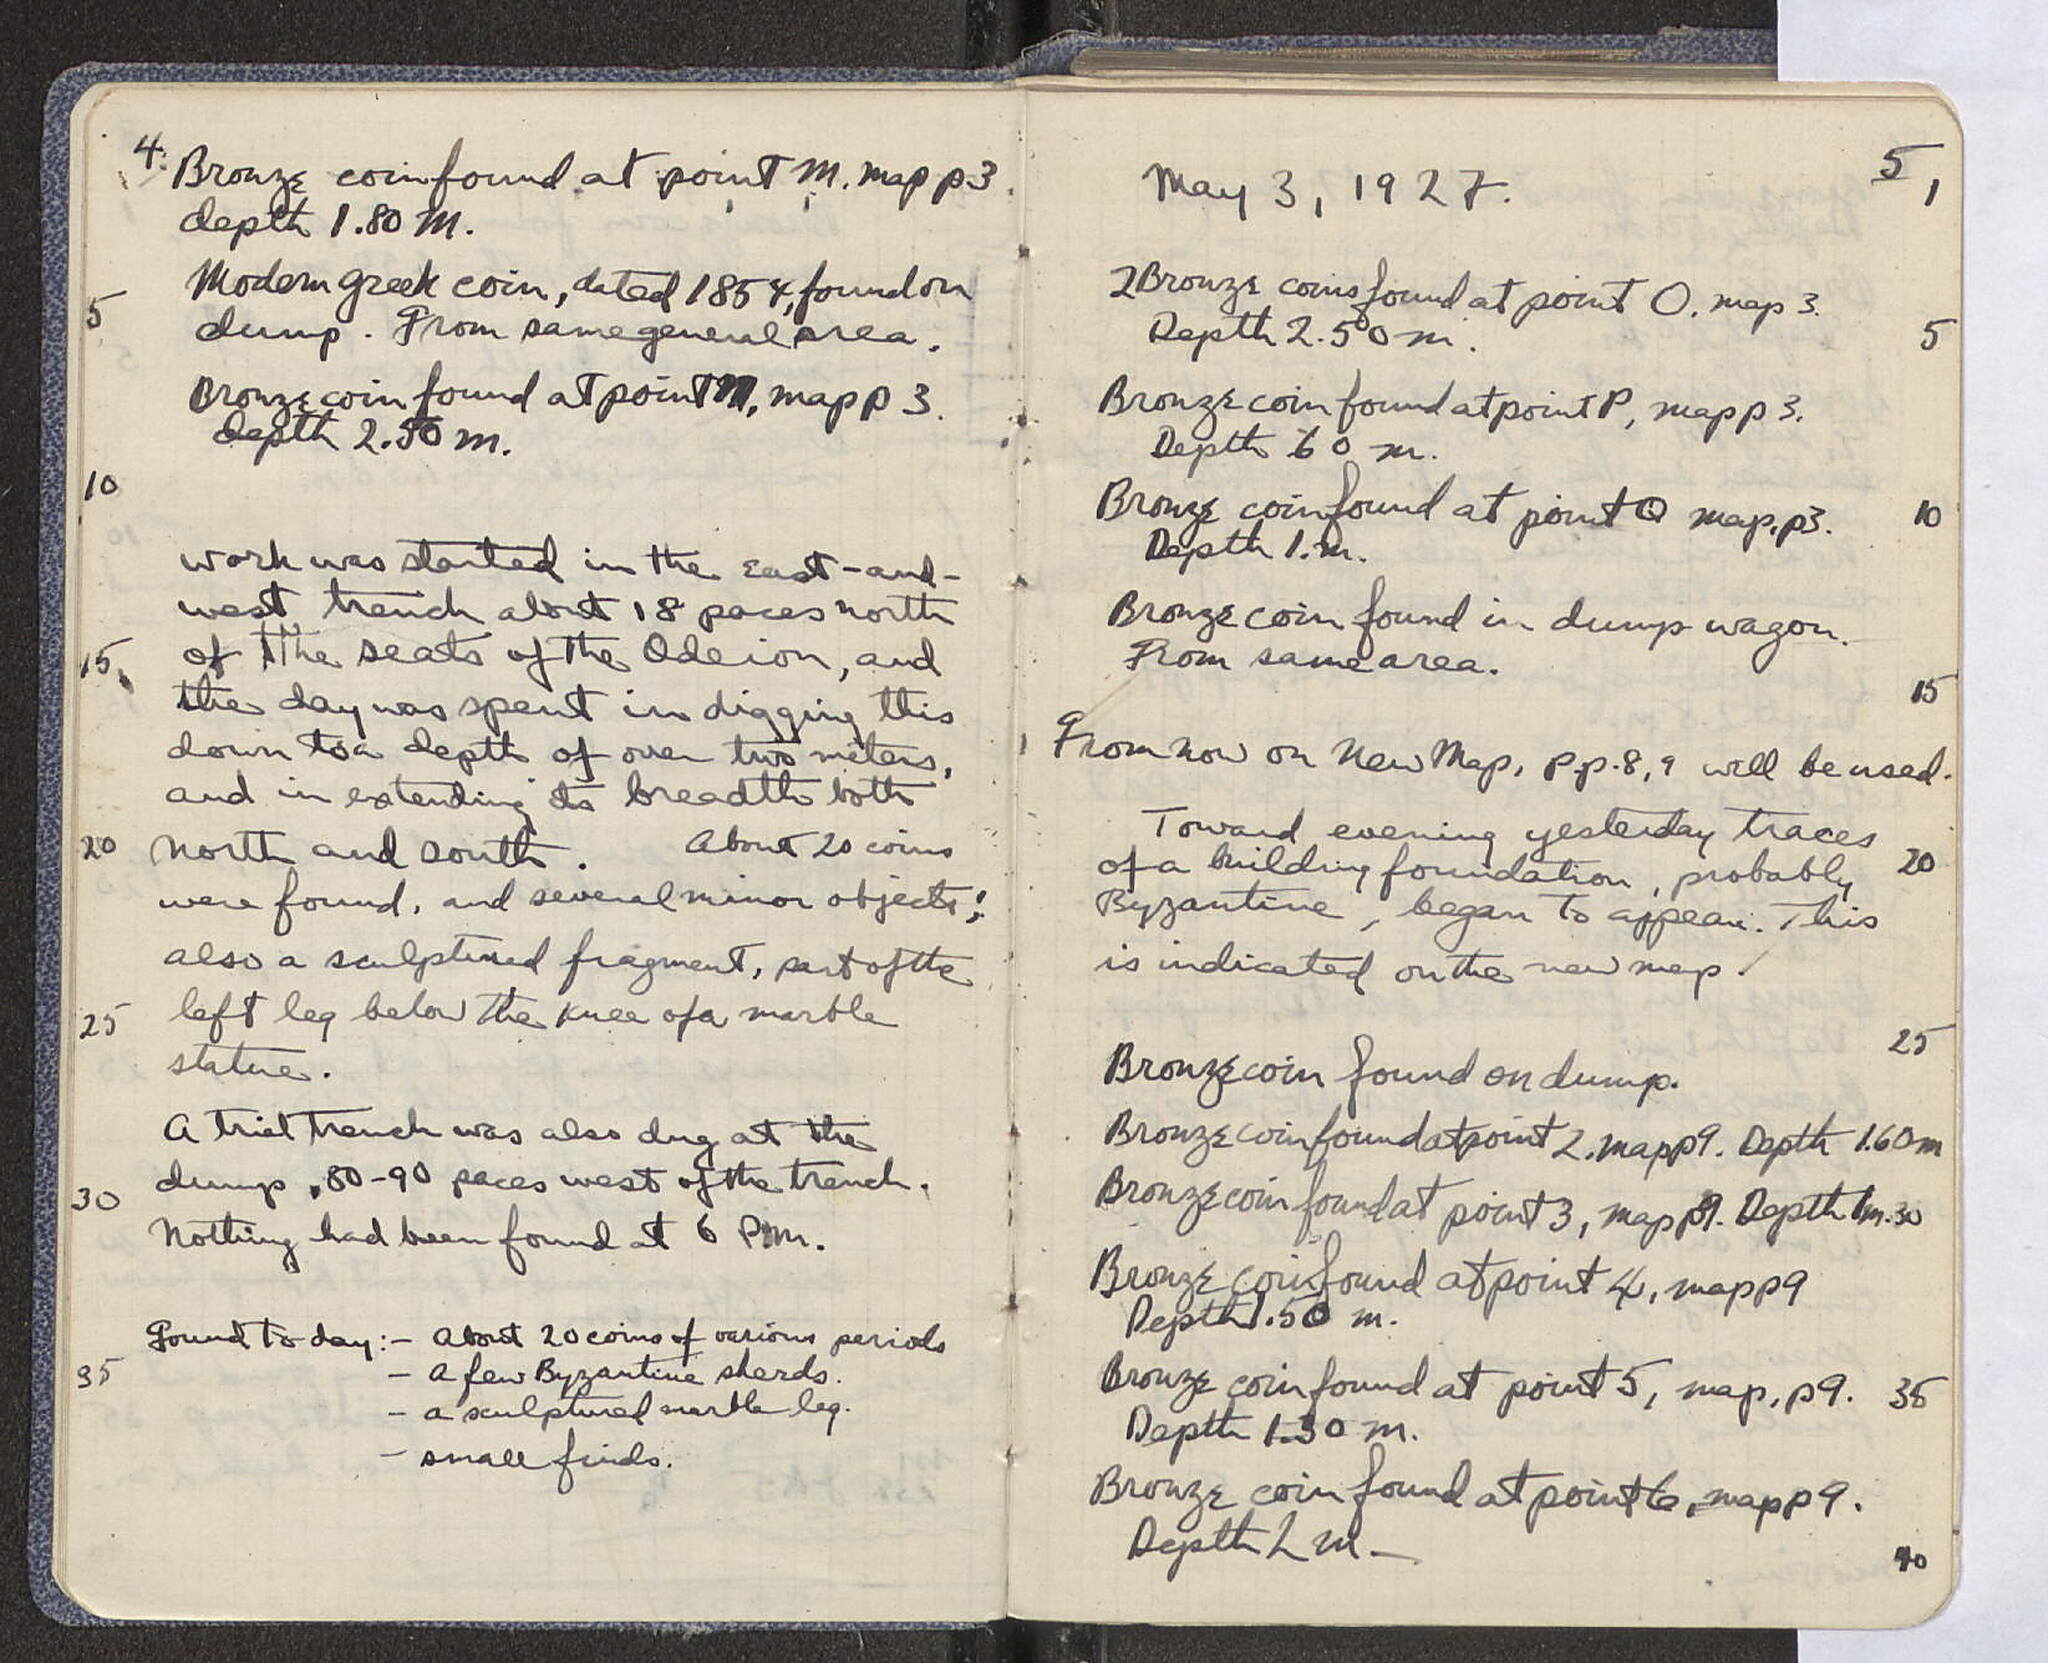 4.
Bronze coin found at point M. map p.3.
depth 1.80 M.
Modern Greek coin, dated 1854, found on
5
dump. From same general area.
Bronze coin found at point M, map p 3.
depth 2.50 m.
10
Work was started in the east-and-
west trench about 18 paces north
of the seats of the Odeion, and
15
the day was spent in digging this
down to a depth of over two meters,
and in extending its breadth both
20
north and south. About 20 coins
were found, and several minor objects;
also a sculptured fragment, part of the
25
left leg below the knee of a marble
statue.
A trial trench was also dug at the
dump, 80-90 paces west of the trench.
30
Nothing had been found at 6 P.M.
Found to day:- About 20 coins of various periods
35
- A few Byzantine sherds.
- a sculptured marble leg.
- small finds.
5
1
May 3, 1927.
2 Bronze coins found at point O. map 3.
Depth 2.50 m.
5
Bronze coin found at point P, map p 3.
Depth 60 m.
Bronze coin found at point Q map, p3.
10
Depth 1. m.
Bronze coin found in dump wagon.
From same area.
15
From now on New Map, p.p. 8, 9 will be used.
Toward evening yesterday traces
of a building foundation, probably
20
Byzantine, began to appear. This
is indicated on the new map.
25
Bronze coin found on dump.
Bronze coin found at point 2. map p 9. Depth 1.60 m
Bronze coin found at point 3, map p9. Depth 1m.30
Bronze coin found at point 4, map p 9
Depth 1.50 m.
Bronze coin found at point 5, map, p 9.
35
Depth 1.30 m.
Bronze coin found at point 6, map p 9.
Depth m -
40